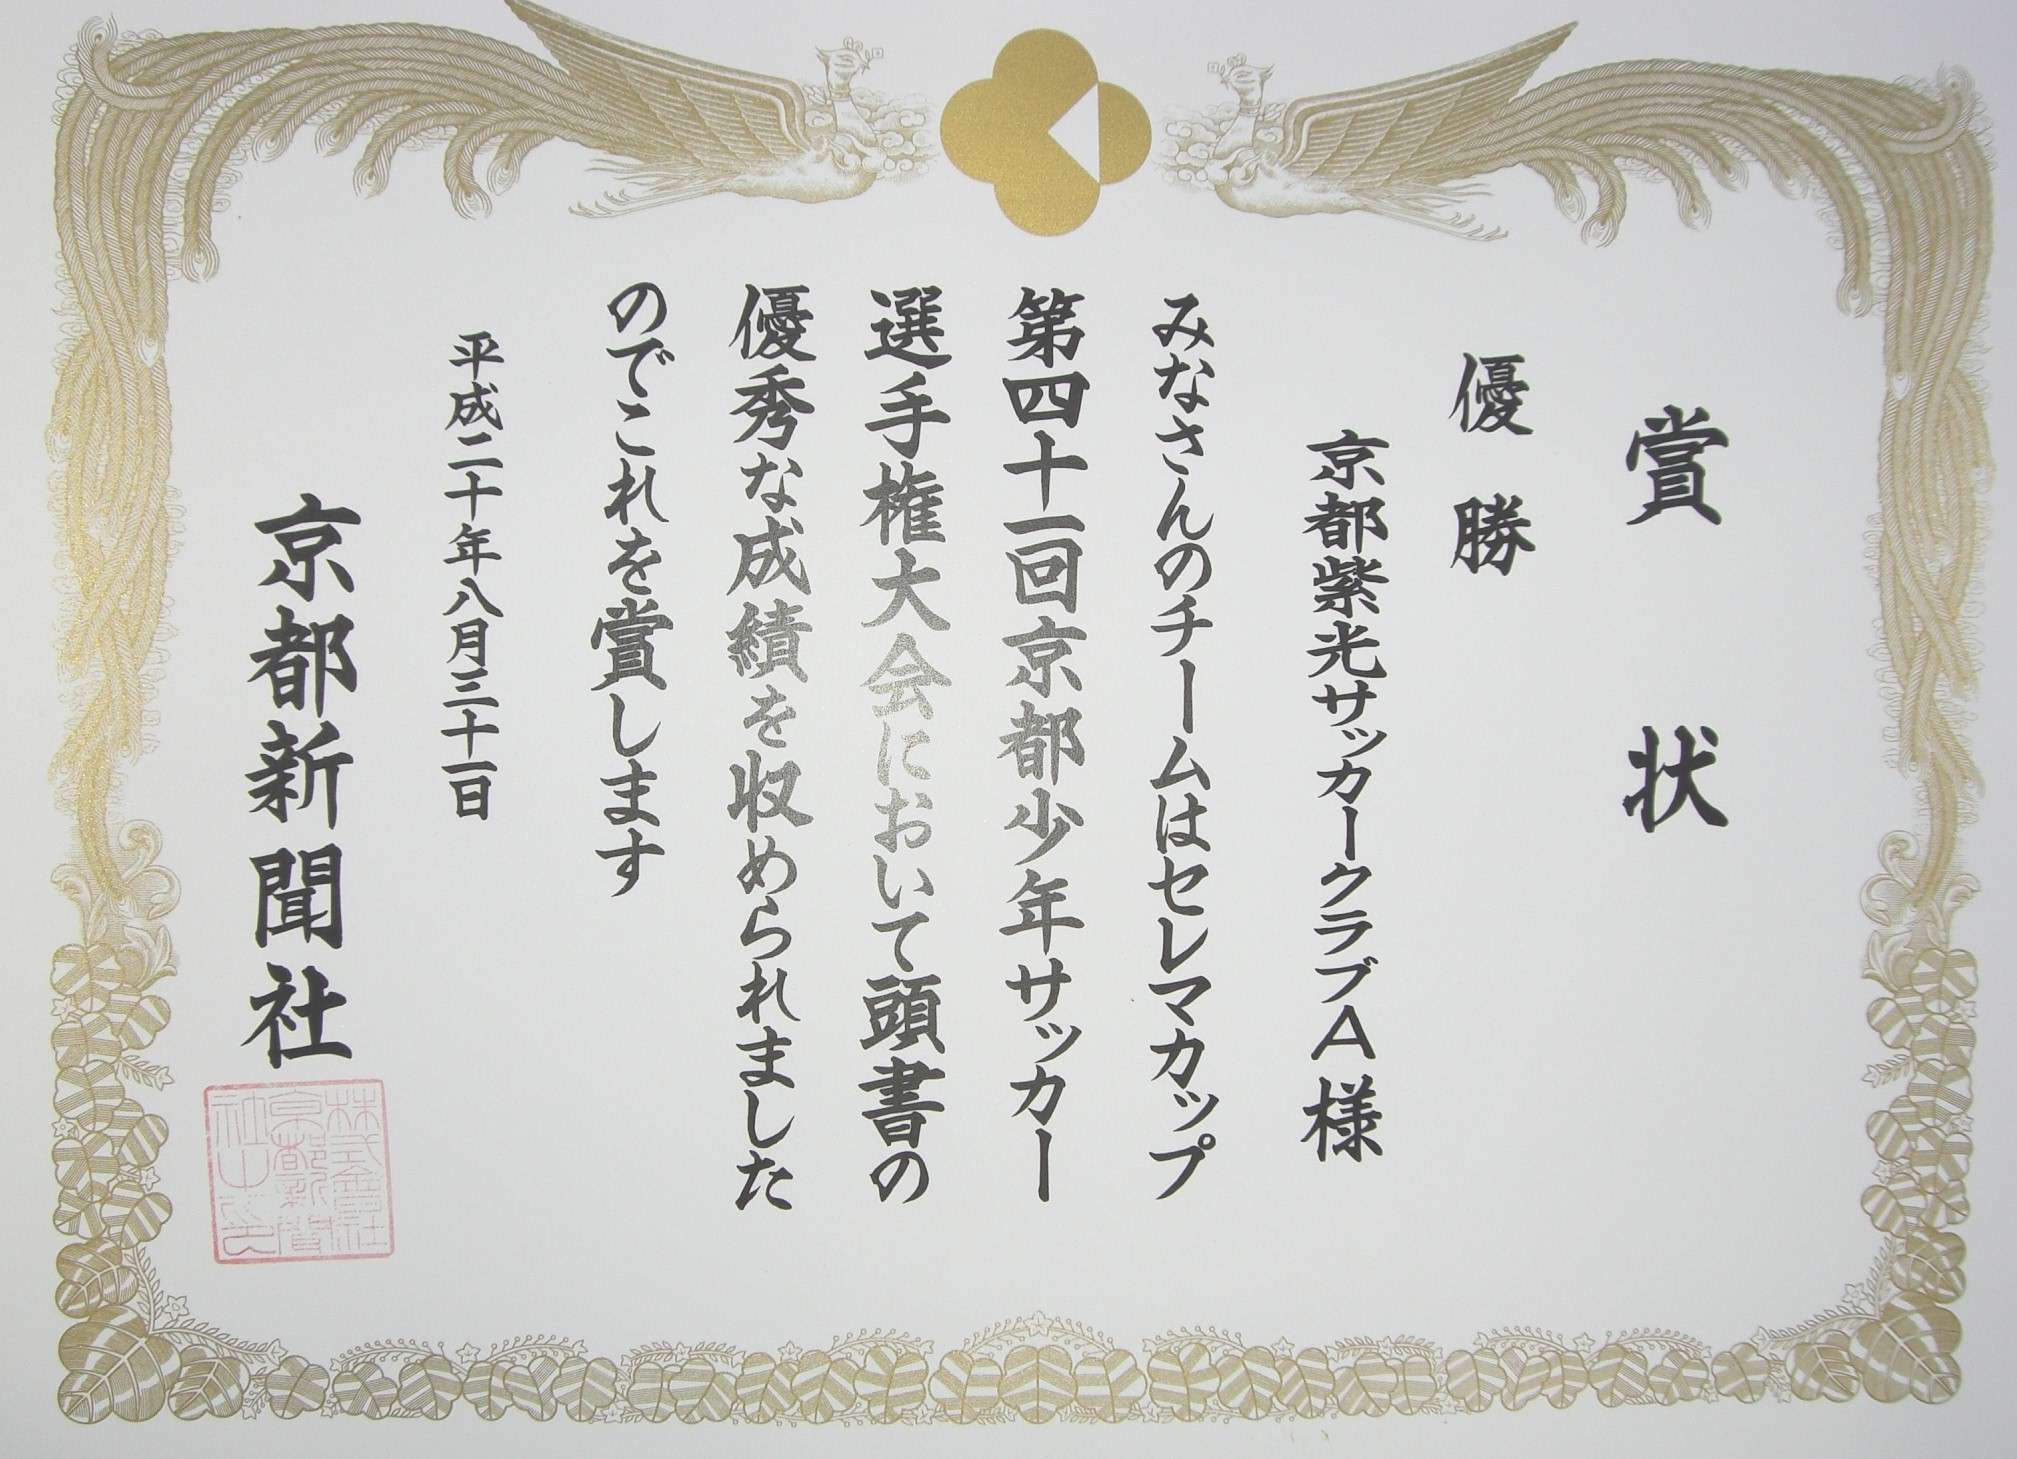 賞状
優勝
京都紫光サッカークラブA様
みなさんのチームはセレマカップ
第四十一回京都少年サッカー
選手権大会において頭書の
優秀な成績を収められました
のでこれを賞します
平成二十年八月三十一日
京都新聞社
株式会社
京都新聞
社之印